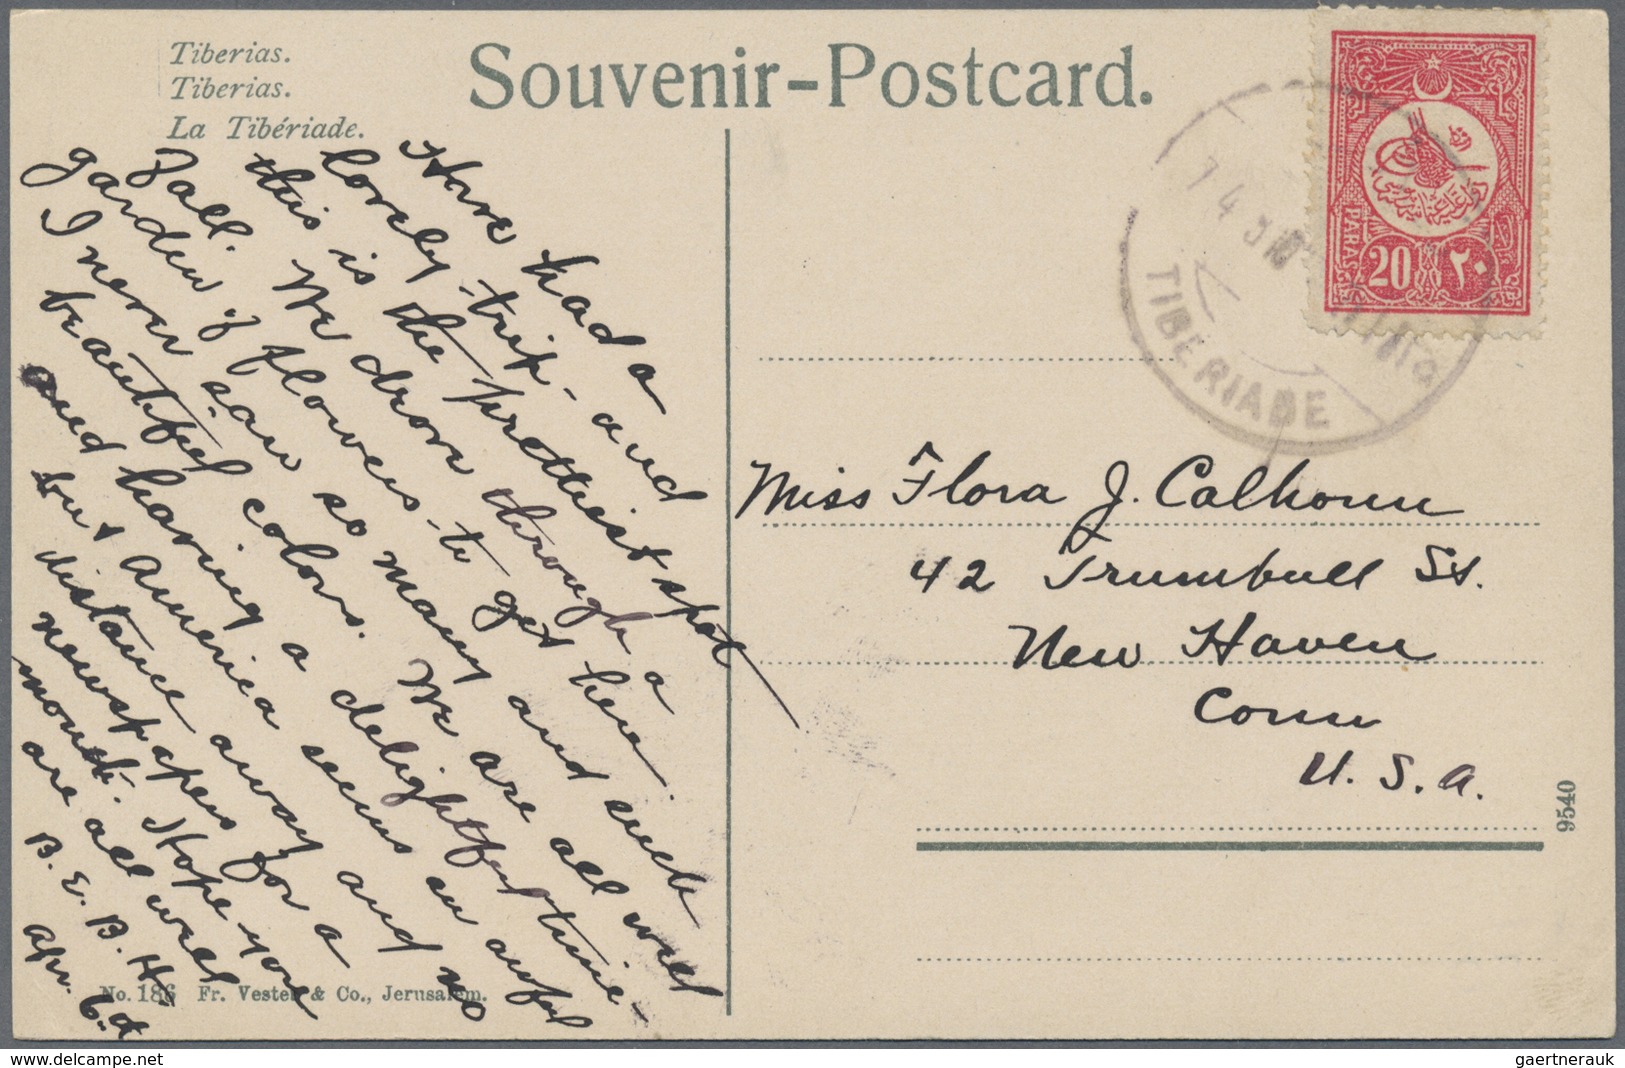 Tiberias.
Tiberias.
La Tibériade.
Souvenir-Postcard.
Have had a
lovely trip - and
this is the prettiest spot
of all. We drove through a
garden of flowers - to get here.
I never saw so many and such
beautiful colors. We are all well
and having a delightful time -
but America seems an awful
distance away and no
newspapers for a
month. Hope you
are all well
B. E. B. H.
Apr. 6th
Miss Flora J. Calhoun
42 Trumbull St.
New Haven
Conn
U. S. A.
TIBERIADE
PARAS
20 ٢٠
9540
No. 186 Fr. Vester & Co., Jerusalem.
gaertnerauk